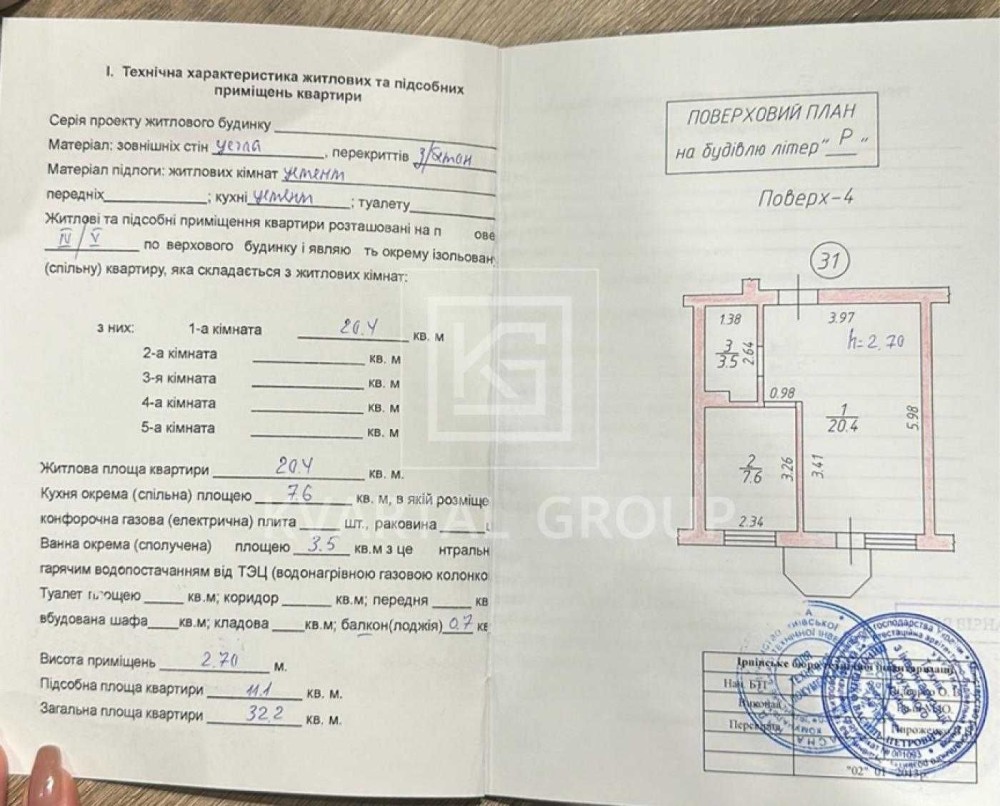 І. Технічна характеристика житлових та підсобних
приміщень квартири
Серія проекту житлового будинку
Матеріал: зовнішніх стін цегла, перекриттів з/бетон
Матеріал підлоги: житлових кімнат цемент
передніх ; кухні цемент ; туалету
Житлові та підсобні приміщення квартири розташовані на п ове
IV/V по верхового будинку і являю ть окрему ізольован
(спільну) квартиру, яка складається з житлових кімнат:
з них: 1-а кімната 20.4 кв. м
2-а кімната кв. м
3-я кімната кв. м
4-а кімната кв. м
5-а кімната кв. м
Житлова площа квартири 20.4 кв. м.
Кухня окрема (спільна) площею 7.6 кв. м, в якій розміще
конфорочна газова (електрична) плита шт., раковина
Ванна окрема (сполучена) площею 3.5 кв.м з це нтральн
гарячим водопостачанням від ТЭЦ (водонагрівною газовою колонко
Туалет площею кв.м; коридор кв.м; передня кв
вбудована шафа кв.м; кладова кв.м; балкон(лоджія) 0.7 кв
Висота приміщень 2.70 м.
Підсобна площа квартири 11.1 кв. м.
Загальна площа квартири 32.2 кв. м.
KVARTAL GROUP
ПОВЕРХОВИЙ ПЛАН
на будівлю літер "Р"
Поверх-4
31
1.38
3.97
h=2.70
3
3.5
2.64
0.98
1
20.4
5.98
2
7.6
3.26
3.41
2.34
Ірпінське бюро технічної інвентаризації
Нач. БТІ
Виконав
Перевірив
"02" 01 2013р.